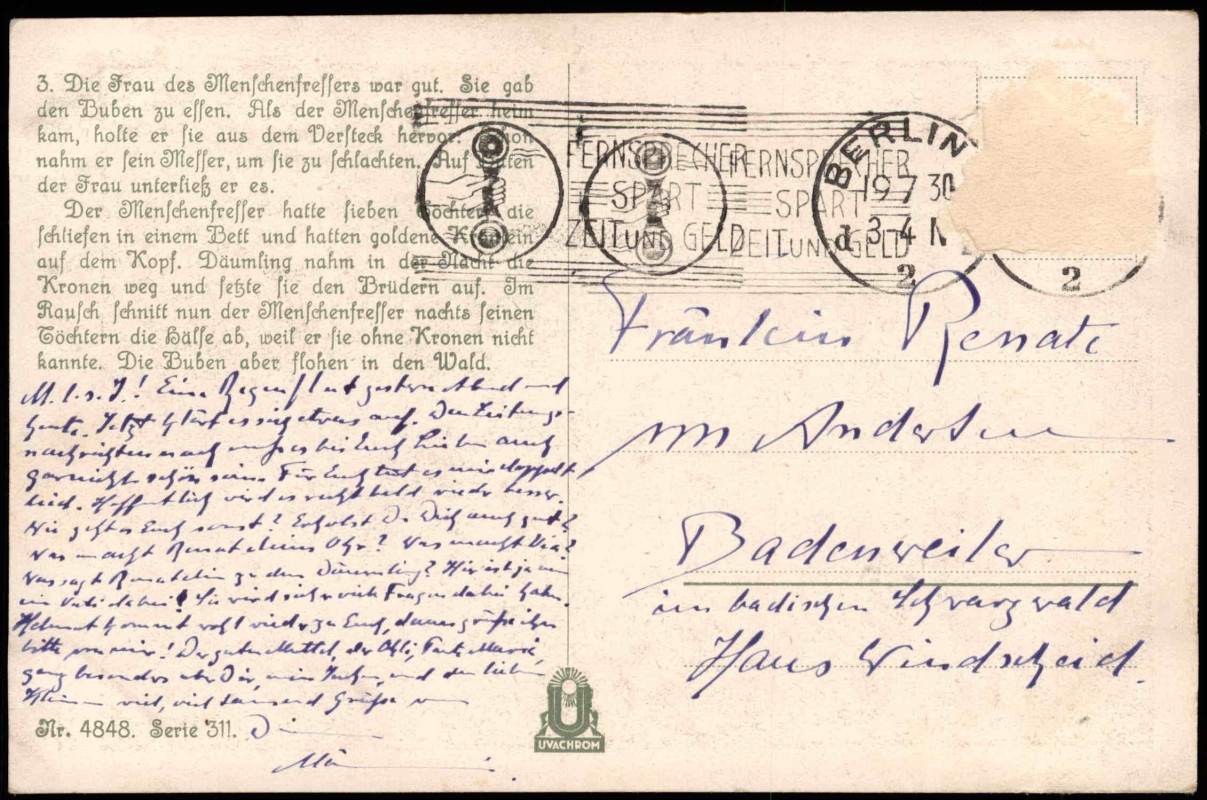 3. Die Frau des Menschenfressers war gut. Sie gab
den Buben zu essen. Als der Menschenfresser heim
kam, holte er sie aus dem Versteck hervor. Schon
nahm er sein Messer, um sie zu schlachten. Auf Bitten
der Frau unterließ er es.
Der Menschenfresser hatte sieben Töchter, die
schliefen in einem Bett und hatten goldene Krönlein
auf dem Kopf. Däumling nahm in der Nacht die
Kronen weg und setzte sie den Brüdern auf. Im
Rausch schnitt nun der Menschenfresser nachts seinen
Töchtern die Hälse ab, weil er sie ohne Kronen nicht
kannte. Die Buben aber flohen in den Wald.
M. l. s. J.! Eine Regenflut gestern Abend und
heute. Jetzt klärt es sich etwas auf. Den Zeitungs-
nachrichten nach muss es bei Euch Lieben auch
garnicht schön sein. Für Euch tut es mir doppelt
leid. Hoffentlich wird es recht bald wieder besser.
Wie geht es Euch sonst? Erholst Du Dich auch gut?
Was macht Renateleins Ohr? Was macht
Was sagt Renatelein zu dem Däumling? Hier ist ja
ein Vati dabei! Sie wird sicher viele Fragen dabei haben.
Helmut kommt wohl wieder zu Euch, dann grüße ihn
bitte von mir! Der guten Muttel, der Tante Marie,
ganz besonders aber Dir, mein und den lieben
viel, viel tausend Grüße von
Nr. 4848. Serie 311.
UVACHROM
FERNSPRECHER
SPART
ZEIT UND GELD
FERNSPRECHER
SPART
ZEIT UND GELD
BERLIN
19 7 30
3-4 N
d
2
2
Fräulein Renate
von Andersen
Badenweiler
im badischen Schwarzwald
Haus Windscheid.